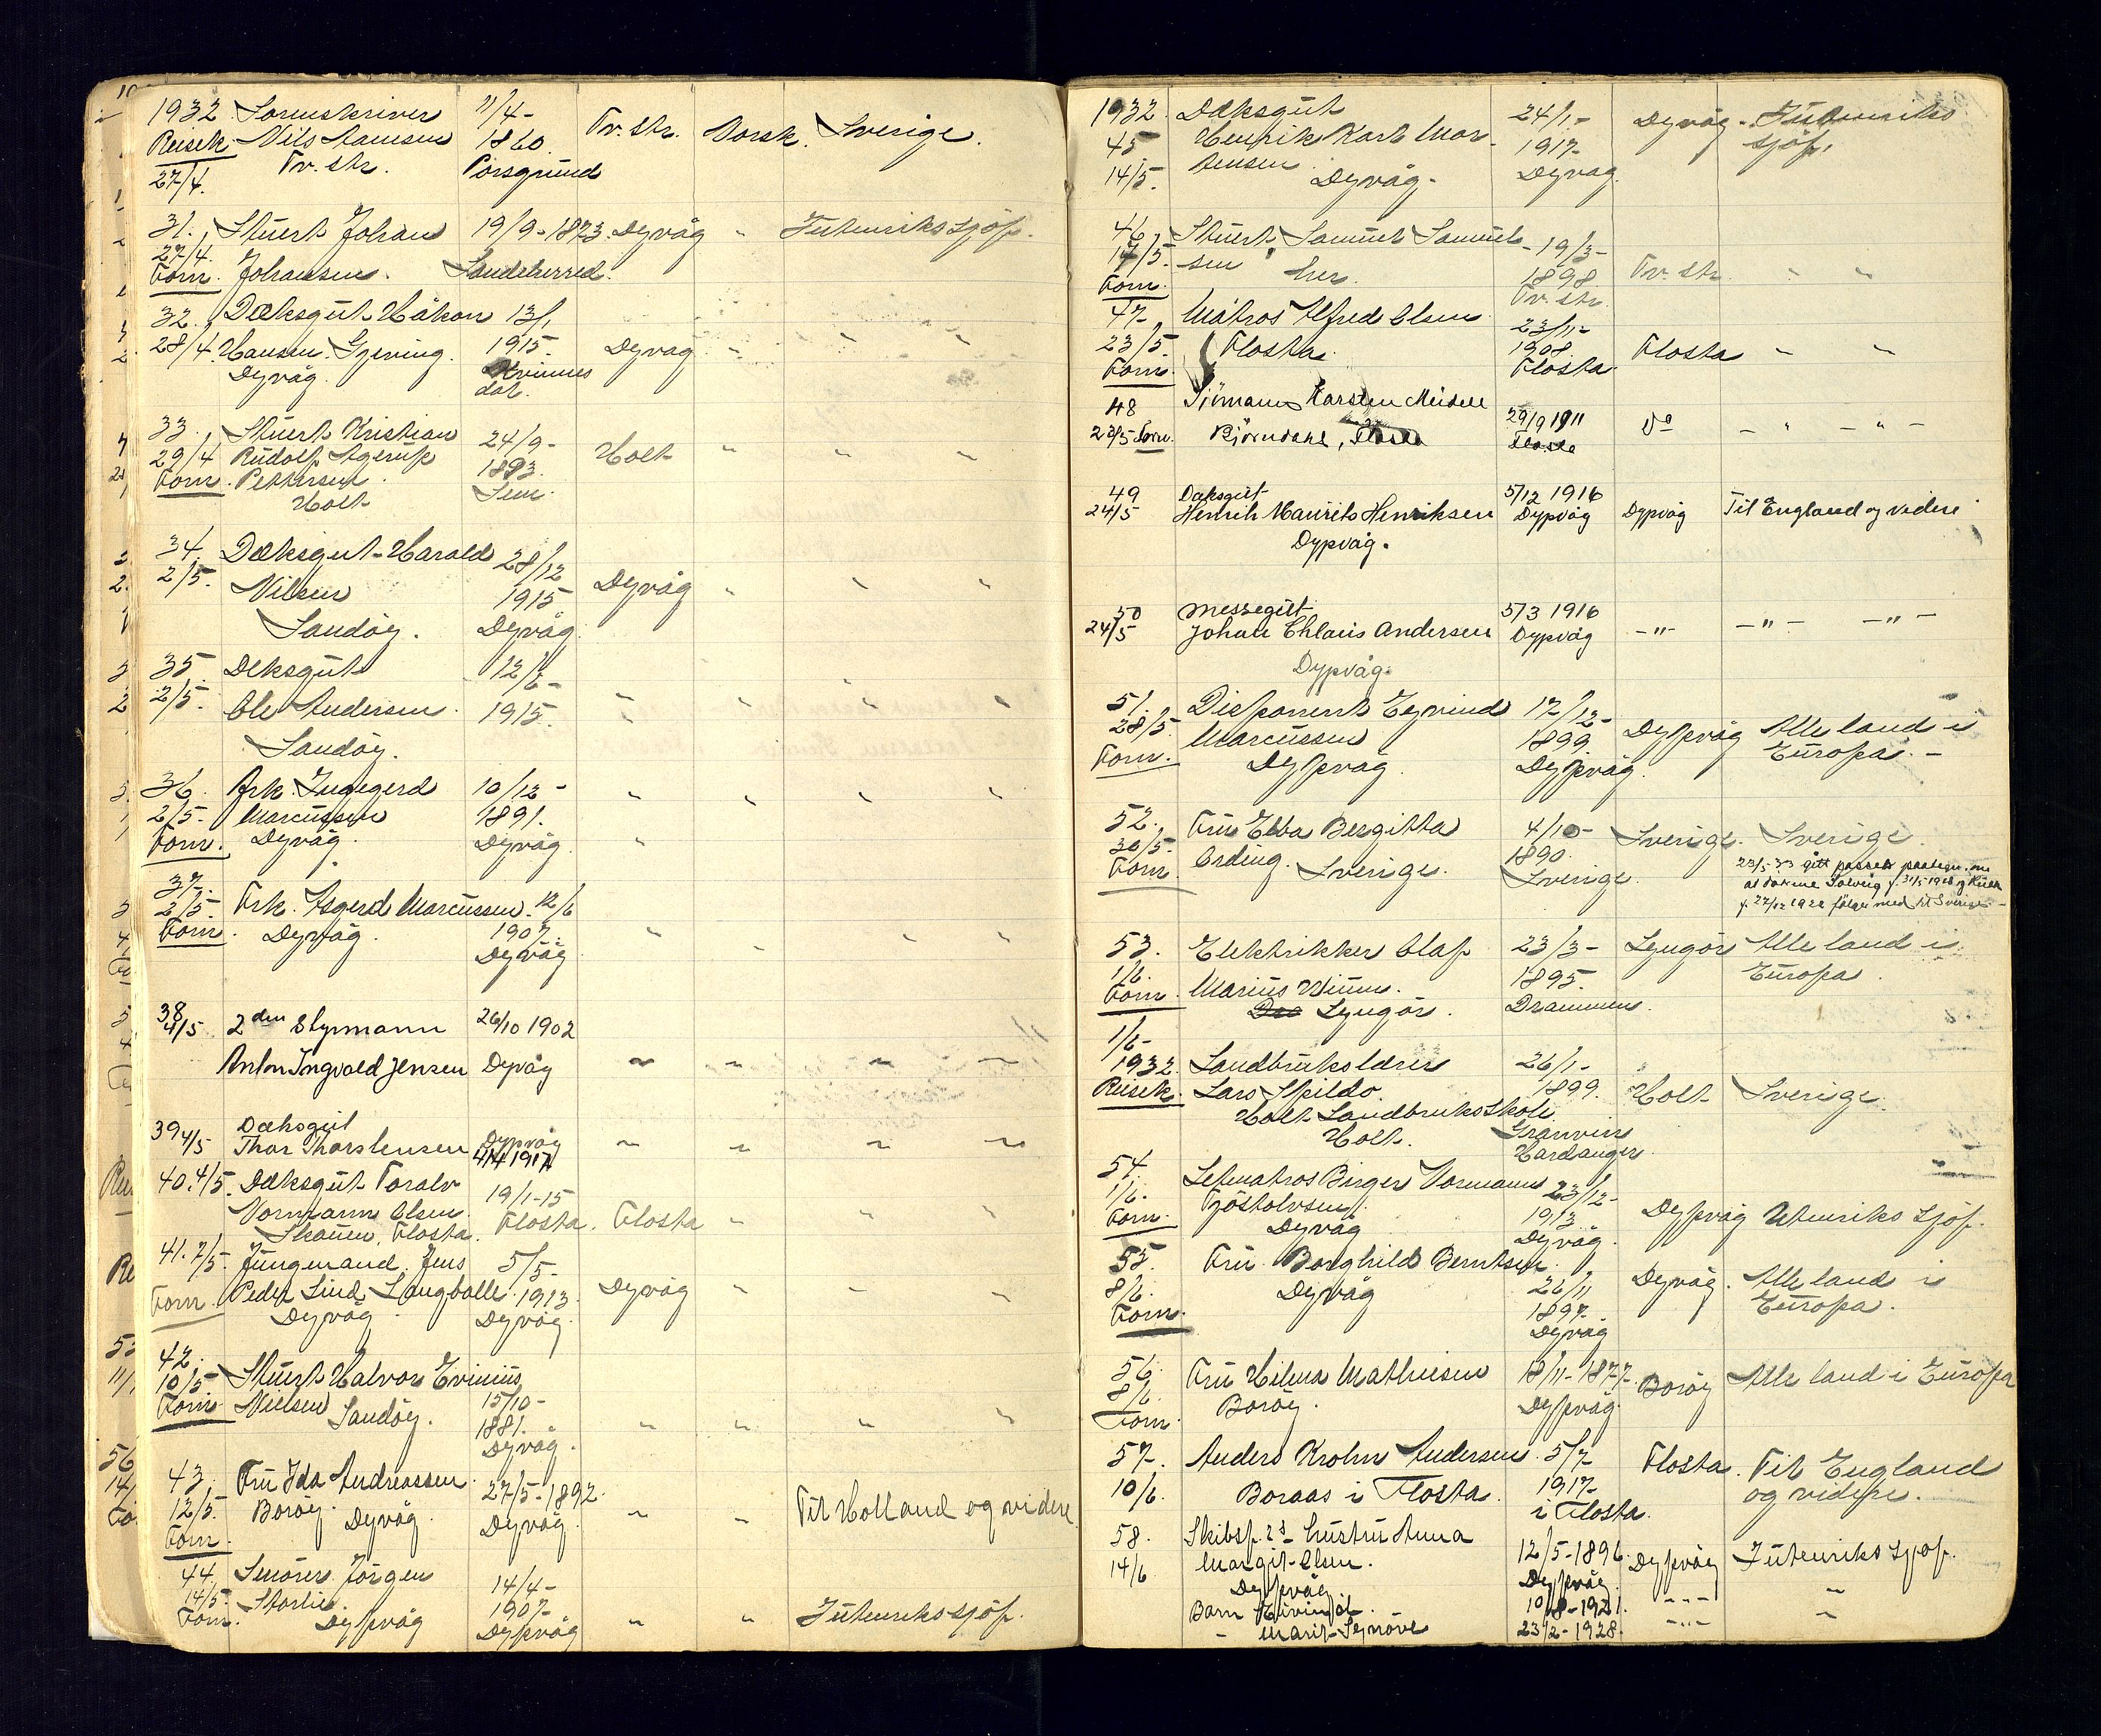 1932 Sorenskriver 11/4- Tv. str. Norsk. Sverige.
Reisek. Nils Hansen 1860.
27/4. Tv. str. Porsgrund
31. Stuert Johan 19/9-1873. Dyvåg " I utenriks sjöf.
27/4.
Forn. Johansen. Sandeherred.
32. Dæksgut Håkon 13/1
28/4. Hansen Gjeving. 1915. Dyvåg " " "
Dyvåg. Kvinnes
dal.
33. Stuert Kristian 24/9-
29/4 Rudolf Agerup 1893. Holt " " "
Forn. Pettersen. Sem.
Holt
34. Dæksgut Harald 28/12
2/5. Nilsen 1915 Dyvåg " " "
Sandöy. Dyvåg.
35. Deksgut 12/6-
2/5. Ole Andersen. 1915. " " " "
Sandöy.
36. Frk. Ingegerd 10/12- " " " "
2/5- Marcussen 1891.
Forn. Dyvåg. Dyvåg. "
37.
2/5. Frk. Asgerd Marcussen. 12/6
Forn. Dyvåg. 1907. " " " "
Dyvåg
38
4/5 2den Styrmann 26/10 1902
Anton Ingvald Jensen Dyvåg " " " "
Dæksgut
39 4/5 Thor Thorstensen Dypvåg " " " "
4/4 1917
40. 4/5. Dæksgut Toralv 19/1-15
Normann Olsen
Skauen, Flosta. Flosta. Flosta " " "
41. 7/5- Jungmand Jens 5/5-
Forn. Peder Lind Langballe. 1913. Dyvåg " " "
Dyvåg. Dyvåg.
42.
10/5 Stuert Halvor Evinius
Forn. Nielsen 15/10-
Sandöy. 1881. " " " "
Dyvåg.
43. Fru Ida Andreassen. 27/5-1892.
12/5. Boröy. Dyvåg. Dyvåg. " " Til Holland og videre
Forn.
44. Smörer Jörgen 14/4-
14/5. 1907-
Forn. Dypvåg Dypvåg " " I utenrikssjöf.
1932. Dæksgut 24/1- Dyvåg. I utenriks
45 Henrik Karl Mor- 1917- sjöf.
14/5. tensen Dyvåg. Dyvåg.
46. Stuert Samuel Samuel- 19/3-
14/5- sen her. 1898. Tv. str. " "
Forn. Tv. str.
47- Matros Alfred Olsen 23/11-
23/5. Flosta. 1908. Flosta " "
Forn. Flosta.
48 Sjömann Karsten Meidell 29/9 1911 Do - " - " -
23/5 Forn. Björndahl, Flosta Flosta
49 Dæksgut 5/12 1916
24/5 Henrik Maurits Henriksen Dypvåg Dypvåg Til England og videre
Dypvåg.
50 Messegut 5/3 1916
24/5 Johan Chlaus Andersen Dypvåg -"- -"- -"-
Dypvåg.
51. Disponent Eyvind 17/12-
28/5. Marcussen 1899. Dypvåg Alle land i
Forn. Dypvåg. Dypvåg. Europa.-
52. Fru Ebba Bergitta 4/10- Sverige. Sverige.
30/5. Ording. Sverige. 1890.
Forn. Sverige. 23/5-33 gitt passet paategn. om
at døtrene Solveig f. 31/5 1926 og Ruth
f. 27/12 1922 følger med til Sverige-
53. Elektrikker Olaf 23/3- Lyngör Alle land i
1/6. Marius Wium. 1895. Europa.
Forn. Lyngör. Drammen.
1/6-
1932. Landbrukslærer 26/1-
Reisek. Lars Spildo. 1899. Holt Sverige.
Holt Landbruksskole
Holt. Granvin
Hardanger.
54. Letmatros Birger Normann 23/12-
1/6. Tjöstolvsen. 1913. Dypvåg Utenriks sjöf.
Forn. Dyvåg Dyvåg.
55. Fru Borghild Berntsen.
8/6. Dyvåg 26/11 Dyvåg. Alle land i
Forn. 1897- Europa.
Dyvåg
56. Fru Hilma Mathiesen 18/11-1877- Boröy Alle land i Europa
8/6 Boröy. Dypvåg.
Forn.
57. Anders Krohn Andersen. 5/7 Flosta. Til England
10/6. Boraas i Flosta. 1917- og videre.
i Flosta.
58. Skibsf. hustru Anna 12/5-1896. Dypvåg I utenriks sjöf.
14/6 Margit Olsen. Dypvåg.
Dypvåg.
Barn Eivind 10/8-1921. -"- "
- Marit Synöve 23/2-1928. -"- "